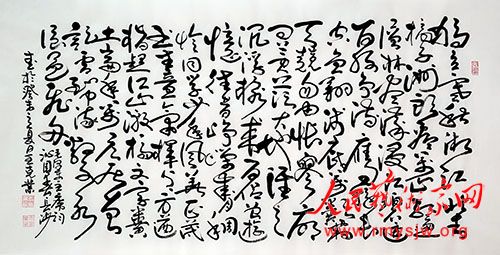 独立寒秋湘江北去
橘子洲头看万山红遍
层林尽染漫江碧透
百舸争流鹰击长
空鱼翔浅底万类霜
天竞自由怅寥廓
问苍茫大地谁主
沉浮携来百侣曾游
忆往昔峥嵘岁月稠
恰同学少年风华正茂
书生意气挥斥方遒
指点江山激扬文字粪
土当年万户侯曾
记否到中流击水
浪遏飞舟
毛泽东主席词
沁园春长沙
书于癸未之夏月
人民艺术家网
www.rmysjw.org